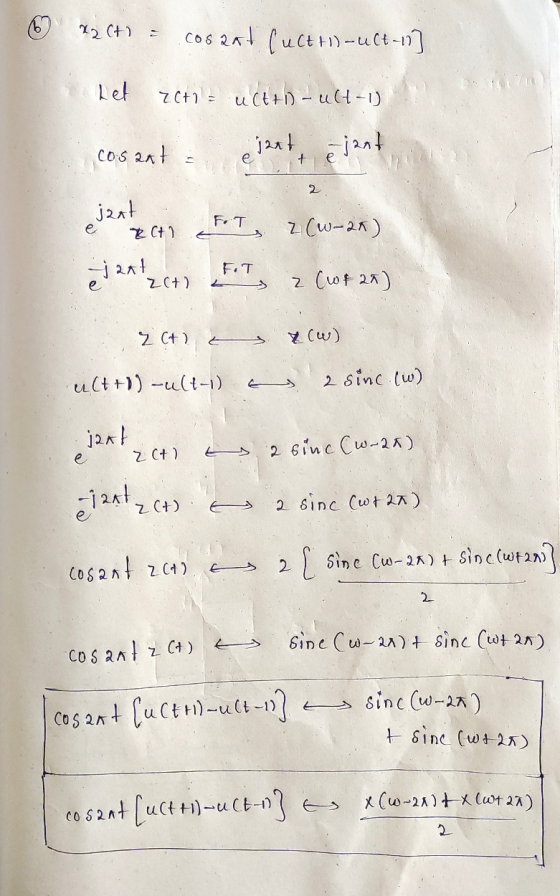 (b) x2(t) = cos 2πt [u(t+1)-u(t-1)]
Let z(t) = u(t+1)-u(t-1)
cos 2πt = e^{j2πt} + e^{-j2πt}
2
e^{j2πt} z(t) <-F.T-> z(w-2π)
e^{-j2πt} z(t) <-F.T-> z(w+2π)
z(t) <-> z(w)
u(t+1)-u(t-1) <-> 2 sinc (w)
e^{j2πt} z(t) <-> 2 sinc (w-2π)
e^{-j2πt} z(t) <-> 2 sinc (w+2π)
cos 2πt z(t) <-> 2 [sinc (w-2π) + sinc (w+2π)]
2
cos 2πt z(t) <-> sinc (w-2π) + sinc (w+2π)
cos 2πt [u(t+1)-u(t-1)] <-> sinc (w-2π)
+ sinc (w+2π)
cos 2πt [u(t+1)-u(t-1)] <-> x(w-2π) + x(w+2π)
2